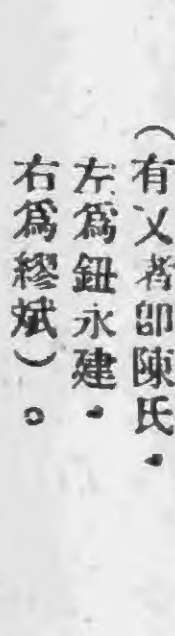 （有乂者卽陳氏・
左為鈕永建・
右為繆斌）。